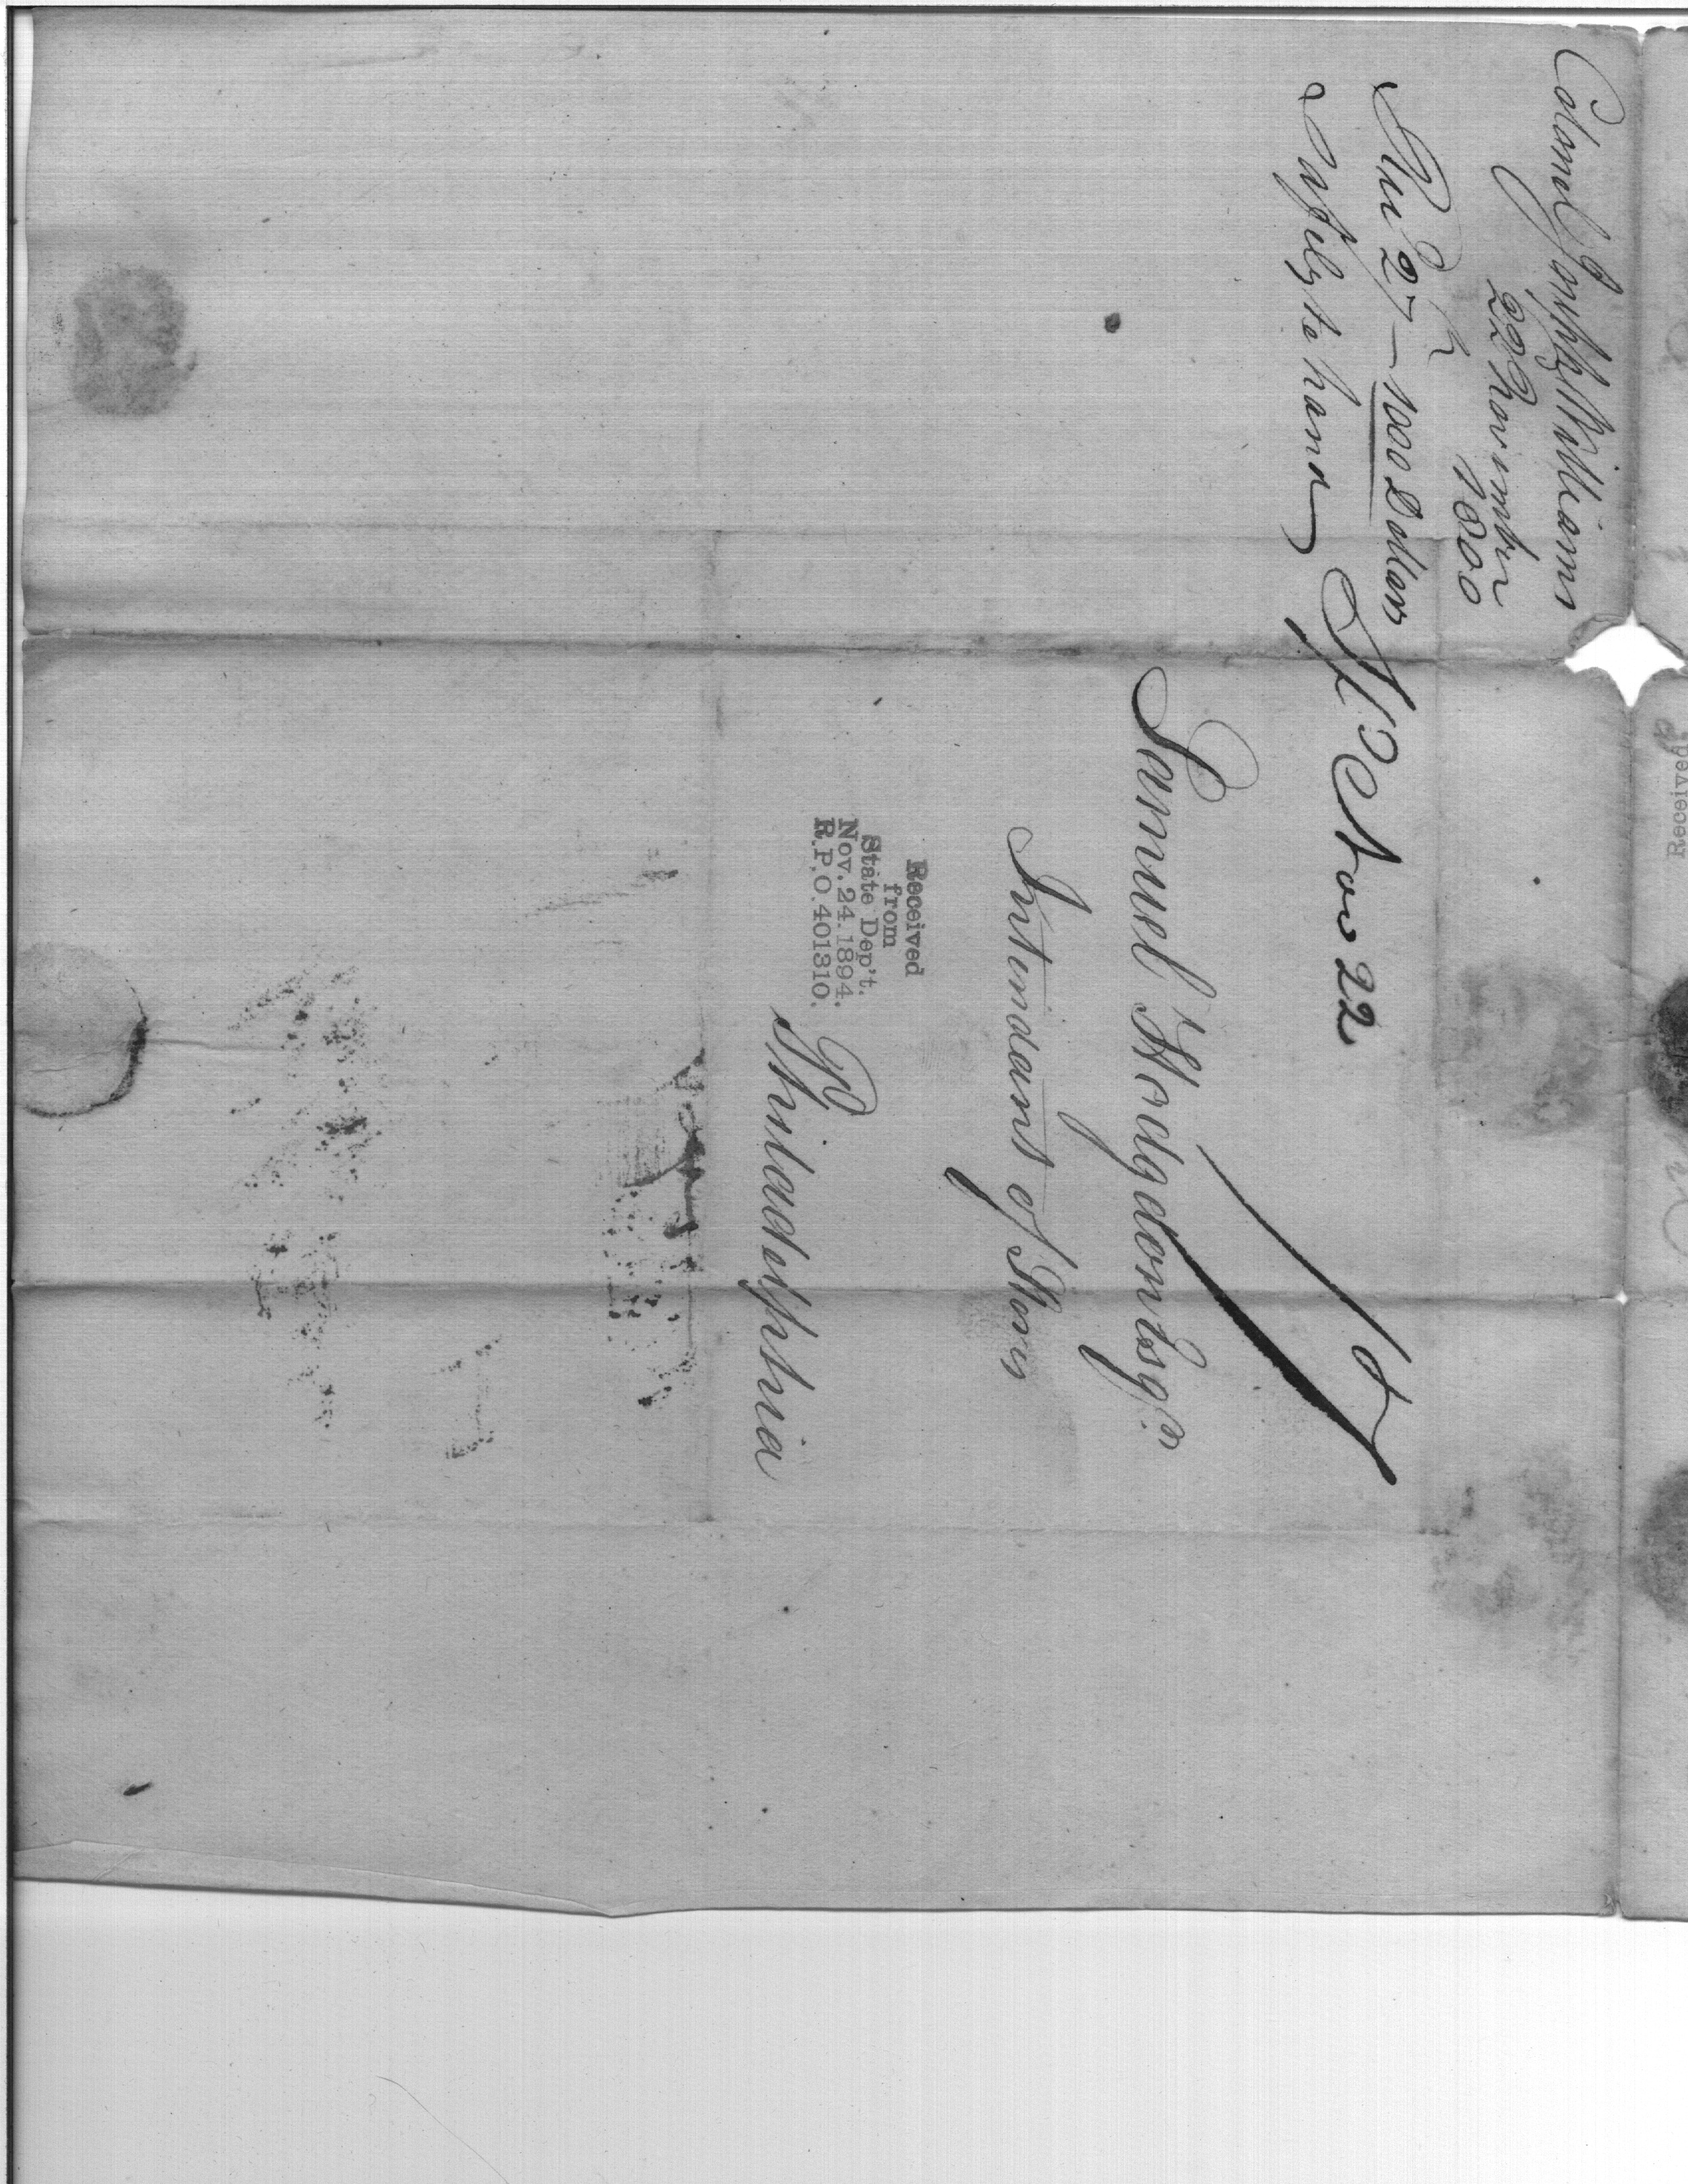 Colonel Joseph Williams
22 November
1800
27 — 1000 Dollars
Safely to hand
Nov 22
Samuel Hodgdon Esqr.
Intendant of
Philadelphia
Received
from
State Dep't.
Nov. 24. 1894.
R.P.O. 401310.
Received